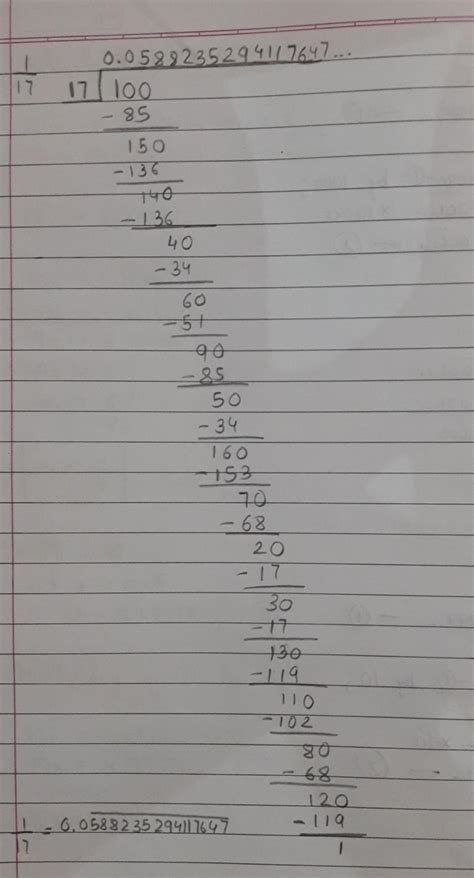 0.0588235294117647...
1/17 17 100
-85
150
-136
140
-136
40
-34
60
-51
90
-85
50
-34
160
-153
70
-68
20
-17
30
-17
130
-119
110
-102
80
-68
120
-119
1
1/17 = 0.0588235294117647